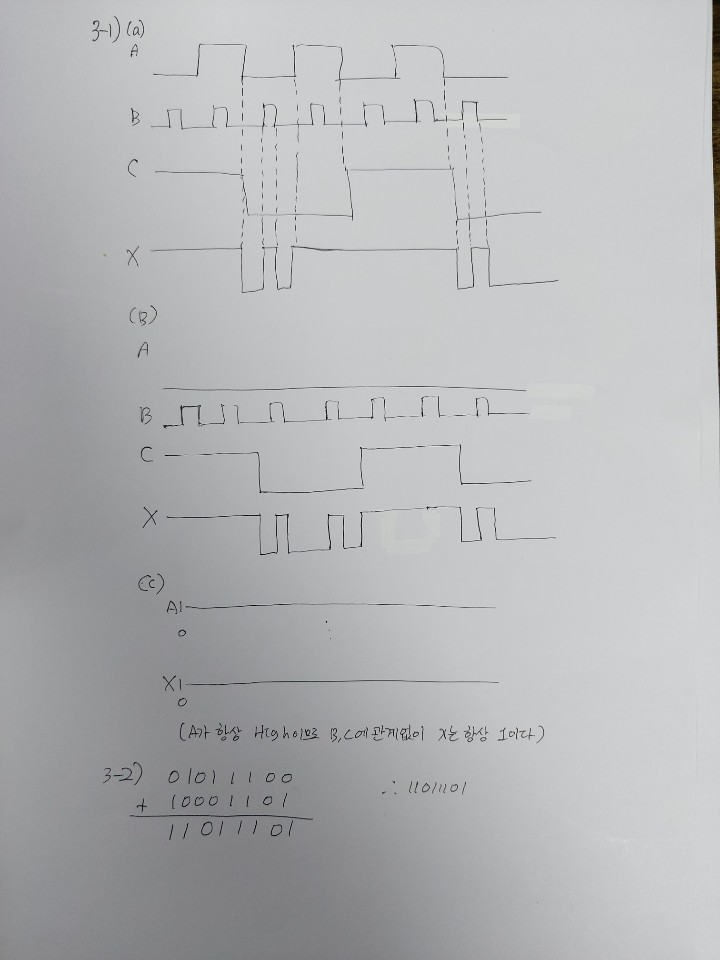 3-1) (a)
A
B
C
X
(B)
A
B
C
X
(C)
A1
0
X1
0
(A가 항상 High이므로 B,C에 관계없이 X는 항상 1이다)
3-2) 01011100
+ 10001101
11011101
∴ 11011101